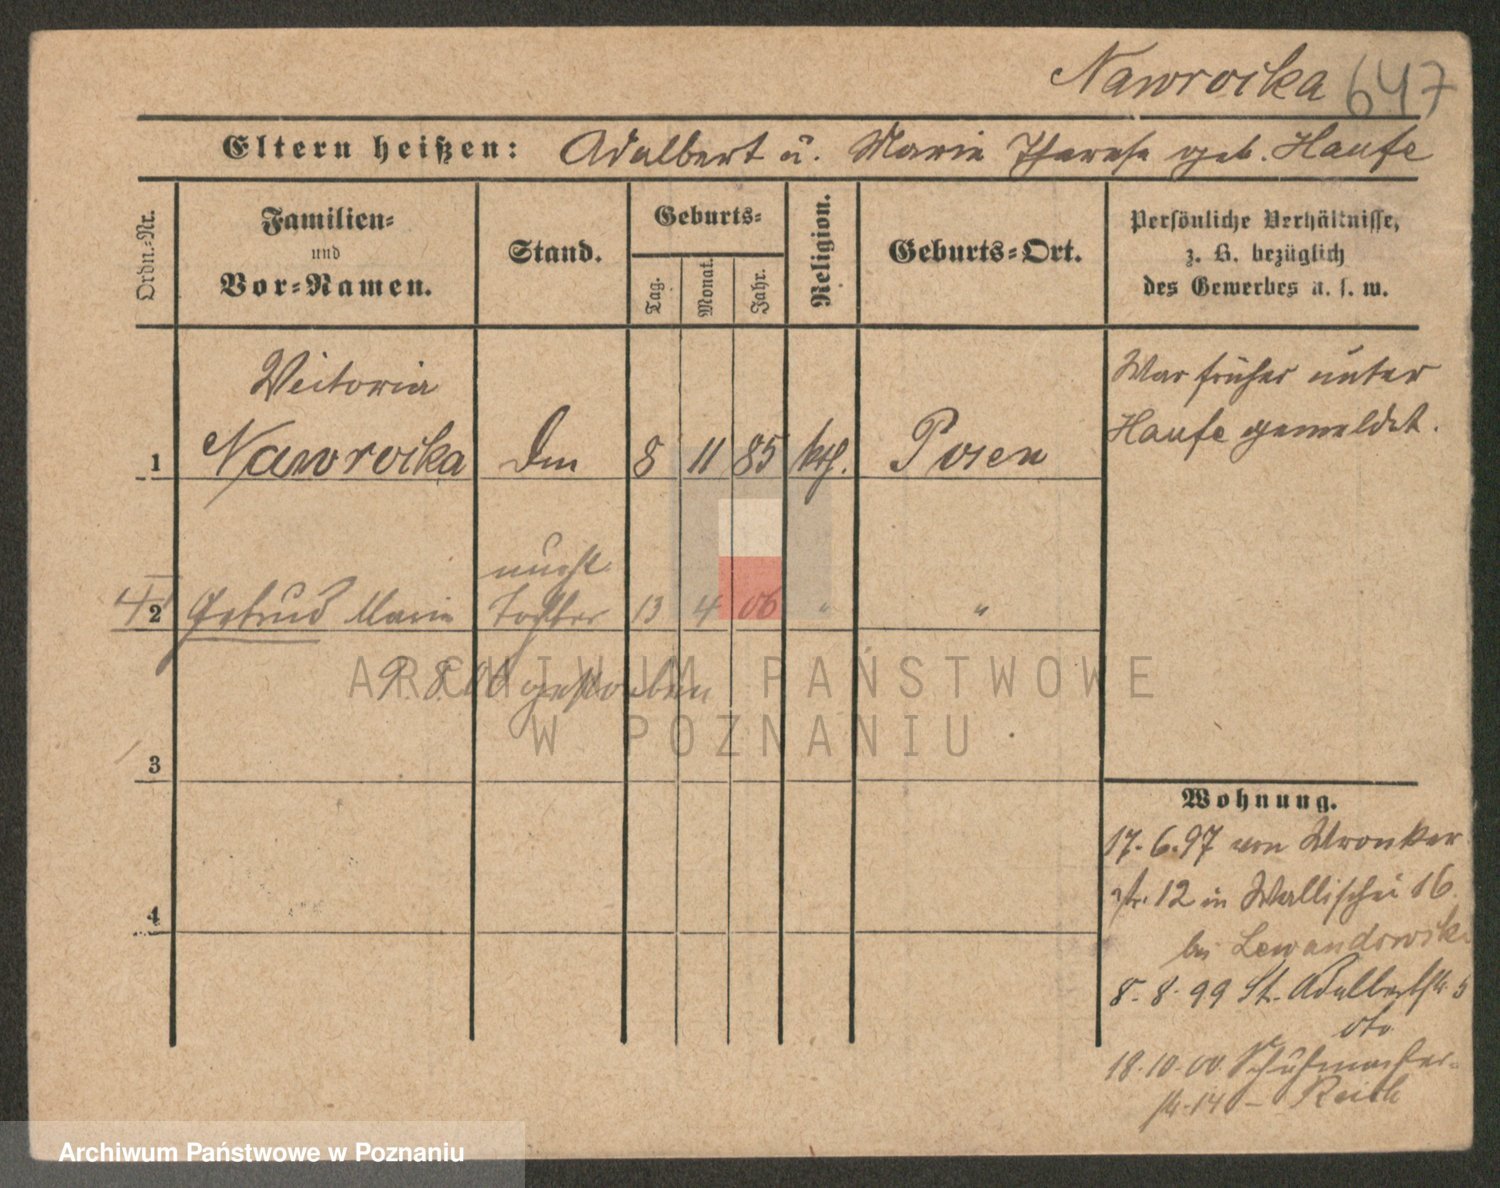 Nawrocka 647
Eltern heißen: Adalbert u. Marie Therese geb. Haufe
Ordn.-Nr.
Familien- und Vor-Namen.
Stand.
Geburts-
Tag.
Monat.
Jahr.
Religion.
Geburts-Ort.
Persönliche Verhältnisse,
z. B. bezüglich
des Gewerbes u. s. w.
Victoria
1 Nawrocka 8 11 85 kth. Posen
War früher unter
Haufe gemeldet.
unehl.
2 Gertrud Marie Tochter 13 4 06 " "
9. 8. 06 gestorben
3
4
Wohnung.
17. 6. 97 von Wronker
str. 12 in Wallischei 16
bei Lewandowski
8. 8. 99 St. Adalbertstr. 5
dto
18. 10. 00 Schuhmacher-
str. 14 – Reich
ARCHIWUM PAŃSTWOWE
W POZNANIU
Archiwum Państwowe w Poznaniu